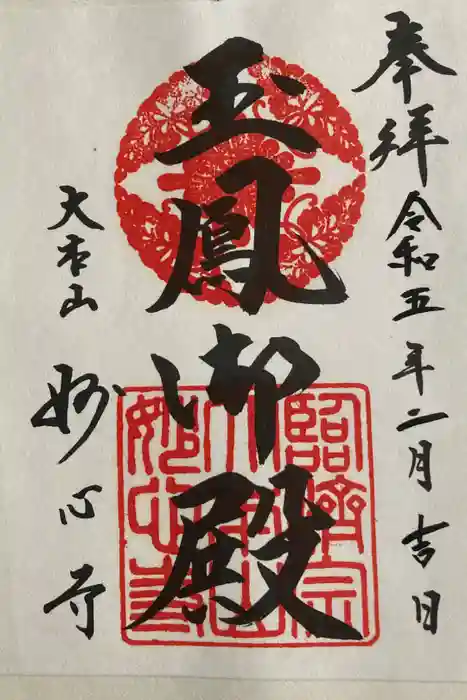 奉拝 令和五年二月吉日
玉鳳御殿
臨済宗
大本山
妙心寺
大本山
妙心寺